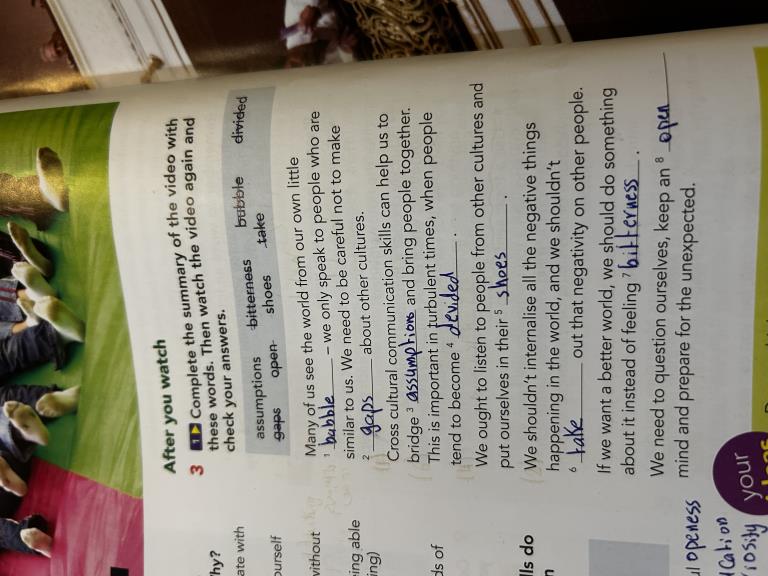 After you watch
3 1 Complete the summary of the video with
these words. Then watch the video again and
check your answers.
assumptions bitterness bubble divided
gaps open shoes take
Many of us see the world from our own little
1 bubble – we only speak to people who are
similar to us. We need to be careful not to make
2 gaps about other cultures.
Cross cultural communication skills can help us to
bridge 3 assumptions and bring people together.
This is important in turbulent times, when people
tend to become 4 devided.
We ought to listen to people from other cultures and
put ourselves in their 5 shoes.
We shouldn't internalise all the negative things
happening in the world, and we shouldn't
6 take out that negativity on other people.
If we want a better world, we should do something
about it instead of feeling 7 bitterness.
We need to question ourselves, keep an 8 open
mind and prepare for the unexpected.
hy?
ate with
ourself
without
ing able
ing)
ds of
lls do
n
openess
your